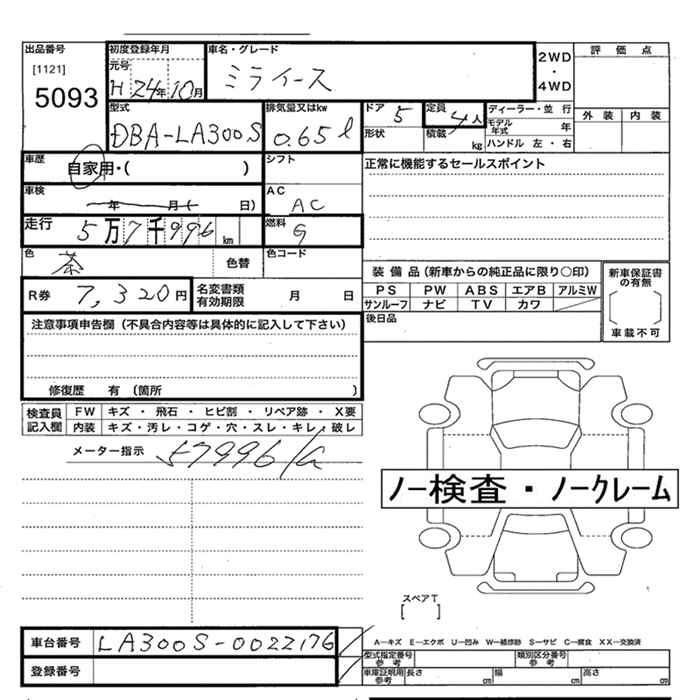 出品番号
[1121]
5093
初度登録年月
元号
H 24年 10月
車名・グレード
ミライース
2WD
・
4WD
評価点
外装 内装
型式
DBA-LA300S
排気量又はkw
0.65ℓ
ドア 5
形状
定員 4人
積載 kg
ディーラー・並行
モデル年式 年
ハンドル 左・右
車歴
自家用・( )
シフト
正常に機能するセールスポイント
車検
年 月( 日)
AC
AC
走行 5万7千996km
燃料
G
色
茶
色替
色コード
装備品(新車からの純正品に限り○印)
PS PW ABS エアB アルミW
サンルーフ ナビ TV カワ
新車保証書の有無
[ ]
車載不可
R券 7,320円
名変書類有効期限 月 日
後日品
注意事項申告欄(不具合内容等は具体的に記入して下さい)
修復歴 有(箇所 )
検査員記入欄
FW キズ・飛石・ヒビ割・リペア跡・X要
内装 キズ・汚レ・コゲ・穴・スレ・キレ・破レ
メーター指示 57996
ノー検査・ノークレーム
スペアT
[ ]
車台番号 LA300S-0022176
登録番号
A―キズ E―エクボ U―凹み W―補修跡 S―サビ C―腐食 XX―交換済
型式指定番号参考
類別区分番号参考
車庫証明用参考 長さ cm 幅 cm 高さ cm